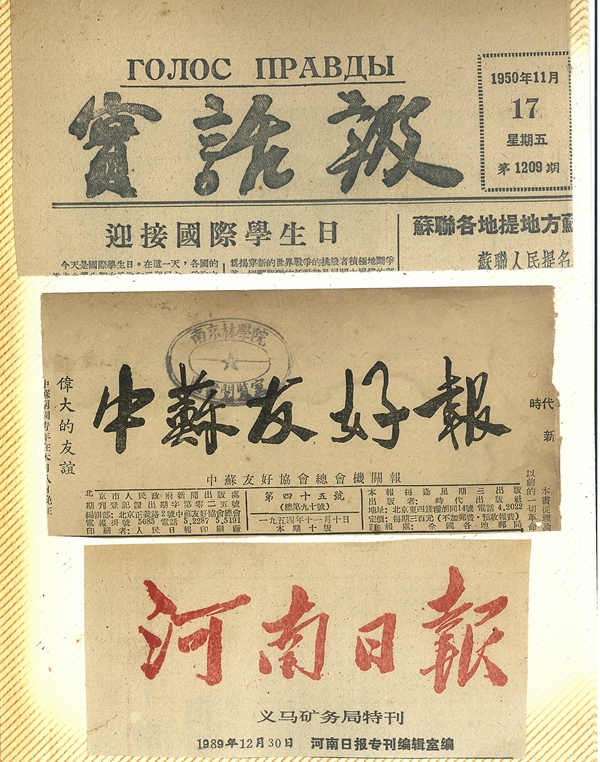 ГОЛОС ПРАВДЫ
實話報
1950年11月
17
星期五
第1209期
迎接國際學生日
今天是國際學生日。在這一天,各國的
為揭穿新的世界戰爭的挑撥者積極地鬥爭
蘇聯各地提地方蘇
蘇聯人民提名
南京林學院
閱覽室
偉大的友誼
中蘇友好報
時代 新
中蘇友好協會總會機關報
北京市人民政府新聞出版處
期刊登記證出期字第零二五號
編輯部:北京正義路2號中蘇友好協會總會
電報掛號5685 電話5,2287 5,5191
印刷者:人民日報印刷廠
第四十五號
(總第九十號)
一九五四年十一月十日
本期十版
本報每逢星期三出版
出版者:時代出版社
定價:每期三百元(不加郵費)預收報費
訂閱處:全國各地郵局
以前的一切革命
本書從理論
河南日报
义马矿务局特刊
1989年12月30日 河南日报专刊编辑室编